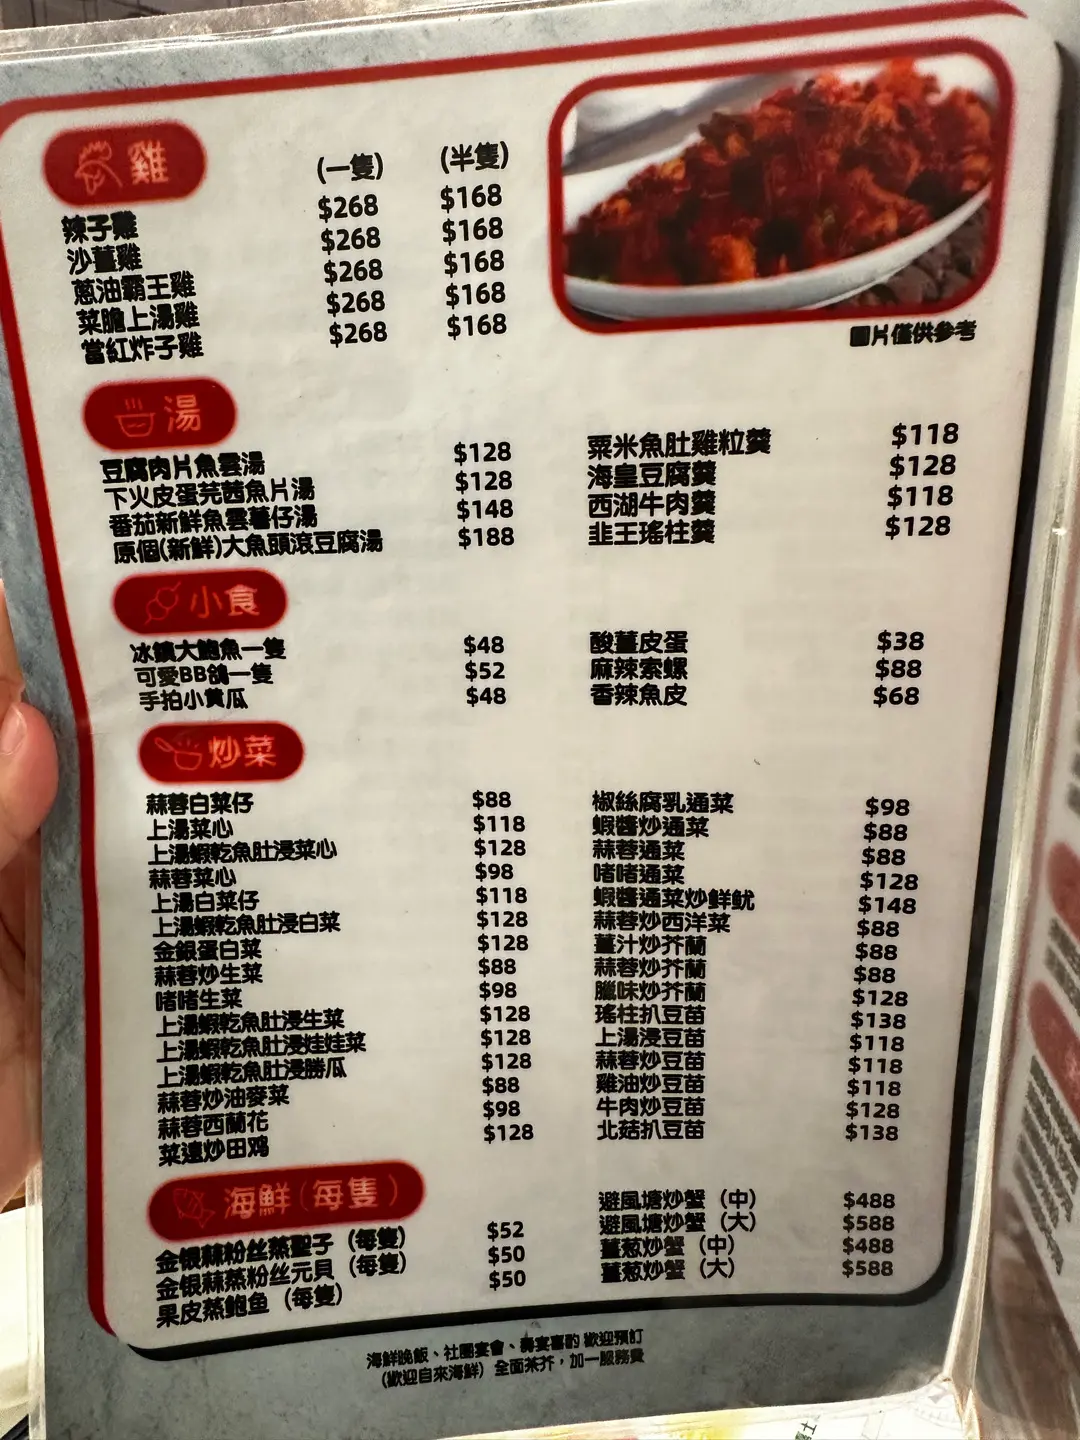 雞
(一隻) (半隻)
辣子雞 $268 $168
沙薑雞 $268 $168
蔥油霸王雞 $268 $168
菜膽上湯雞 $268 $168
當紅炸子雞 $268 $168
圖片僅供參考
湯
豆腐肉片魚雲湯 $128
下火皮蛋芫茜魚片湯 $128
番茄新鮮魚雲薯仔湯 $148
原個(新鮮)大魚頭滾豆腐湯 $188
粟米魚肚雞粒羹 $118
海皇豆腐羹 $128
西湖牛肉羹 $118
韭王瑤柱羹 $128
小食
冰鎮大鮑魚一隻 $48
可愛BB鴿一隻 $52
手拍小黄瓜 $48
酸薑皮蛋 $38
麻辣索螺 $88
香辣魚皮 $68
炒菜
蒜蓉白菜仔 $88
上湯菜心 $118
上湯蝦乾魚肚浸菜心 $128
蒜蓉菜心 $98
上湯白菜仔 $118
上湯蝦乾魚肚浸白菜 $128
金銀蛋白菜 $128
蒜蓉炒生菜 $88
啫啫生菜 $98
上湯蝦乾魚肚浸生菜 $128
上湯蝦乾魚肚浸娃娃菜 $128
上湯蝦乾魚肚浸勝瓜 $128
蒜蓉炒油麥菜 $88
蒜蓉西蘭花 $98
菜遠炒田鸡 $128
椒絲腐乳通菜 $98
蝦醬炒通菜 $88
蒜蓉通菜 $88
啫啫通菜 $128
蝦醬通菜炒鮮魷 $148
蒜蓉炒西洋菜 $88
薑汁炒芥蘭 $88
蒜蓉炒芥蘭 $88
臘味炒芥蘭 $128
瑤柱扒豆苗 $138
上湯浸豆苗 $118
蒜蓉炒豆苗 $118
雞油炒豆苗 $118
牛肉炒豆苗 $128
北菇扒豆苗 $138
海鮮(每隻)
金银蒜粉丝蒸聖子 (每隻) $52
金银蒜蒸粉丝元貝 (每隻) $50
果皮蒸鲍鱼 (每隻) $50
避風塘炒蟹 (中) $488
避風塘炒蟹 (大) $588
薑葱炒蟹 (中) $488
薑葱炒蟹 (大) $588
海鮮晚飯、社團宴會、壽宴喜酌 歡迎預訂
(歡迎自來海鮮) 全面茶芥，加一服務費